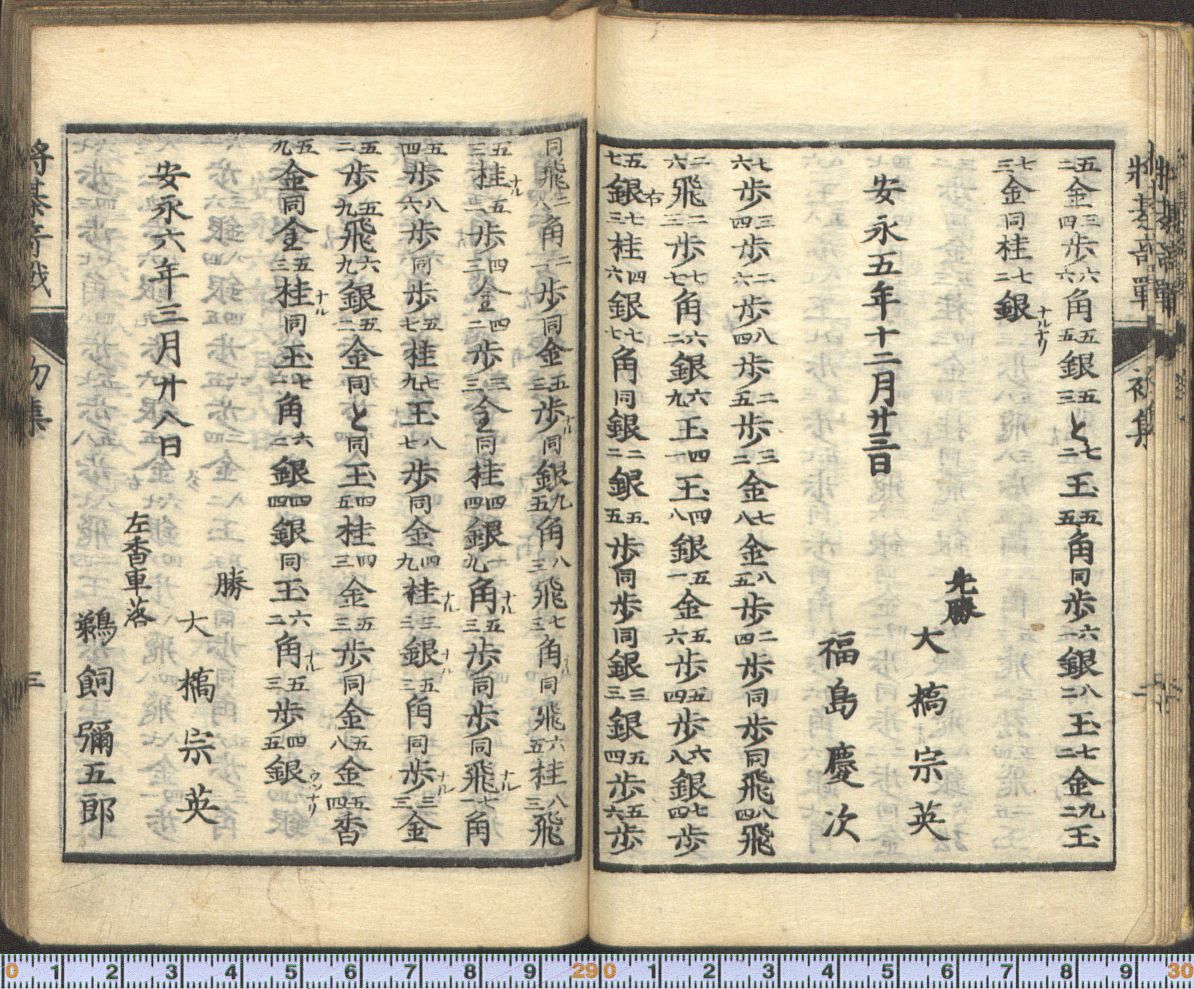 五二金三四歩六六角五五銀五三と七二玉五五角同歩六一銀八二玉七二金九二玉
七三金同桂七二銀ナルナリ
先勝 大橋宗英
安永五年十二月廿三日
福島慶次
七六歩三四歩二六歩八四歩二五歩三二金七八金八五歩二四歩同歩同飛八四飛
二六飛二三歩七七角六二銀六九玉四一玉四八銀五一金五六歩五四歩六八銀七四歩
五七銀右七三桂四六銀七七角同銀二二銀五五歩同歩同銀三三銀五四歩五六歩
同飛角二二歩同金五三歩ナル同銀九五角八三飛七三角ナル同飛六五桂八三飛
五三桂ナル五歩四三金四二歩三三金同桂四四銀九九角ナル五三歩同歩同飛ナル七一角
五四歩八六歩同歩五七桂七九玉八七歩同金四九桂ナル三銀ナル五三角同歩ナル三三金
五二歩ナル五九飛六九銀五二金同と同玉四五桂四三金五三歩同金五八金五四香
五九金同金五三桂ナル同玉七一角六二銀四四銀同玉六二角ナル五三歩四五銀ウツナリ
勝 大橋宗英
安永六年三月廿八日
左香車落 鵜飼彌五郎
将棊奇戦 初集 三